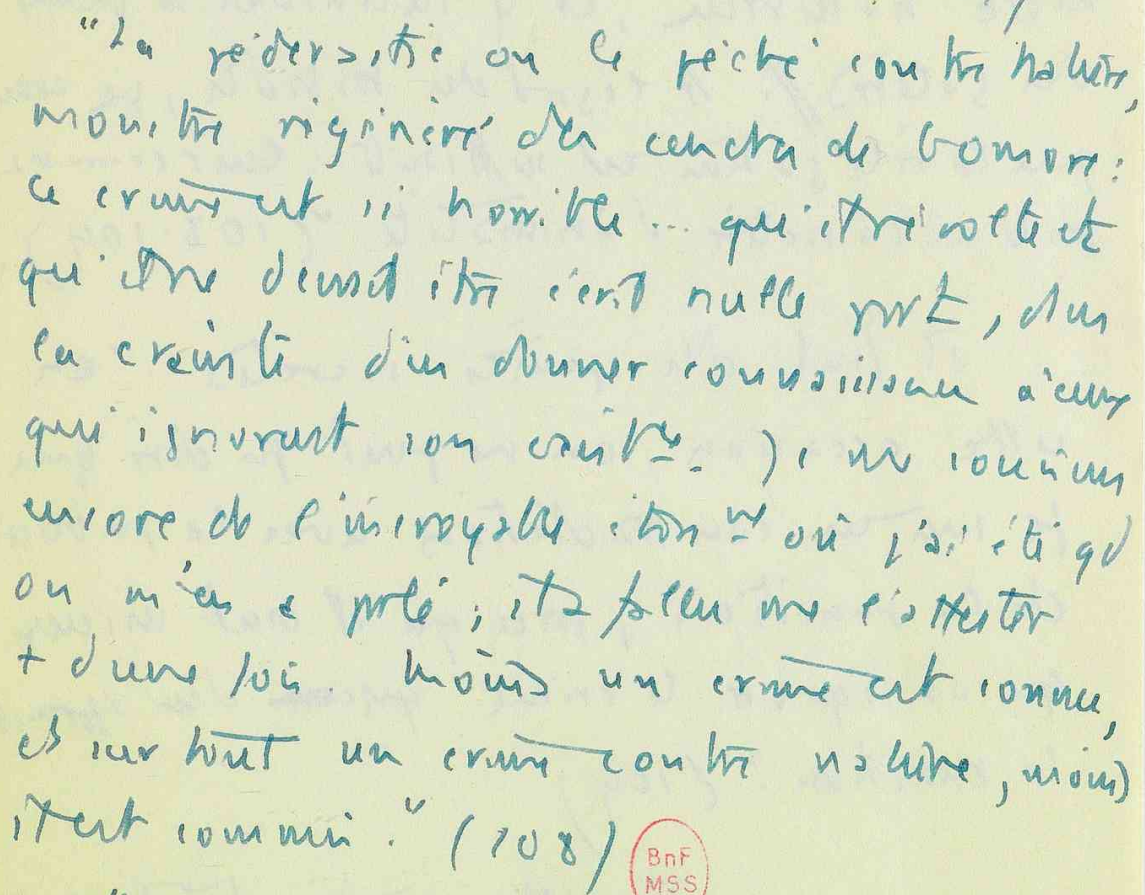 "La pédérastie ou le péché contre nature,
monstre régénéré des cendres de Gomore :
ce crime est si horrible ... qu'il révolte et
qu'il ne devrait être écrit nulle part, dans
la crainte d'en donner connaissance à ceux
qui ignorent son existce. Je me souviens
encore de l'incroyable étonnt où j'ai été qd
on m'en a parlé ; il a fallu me l'attester
+ d'une fois. Moins un crime est connu,
et surtout un crime contre nature, moins
il est commis." (108)
BnF
MSS